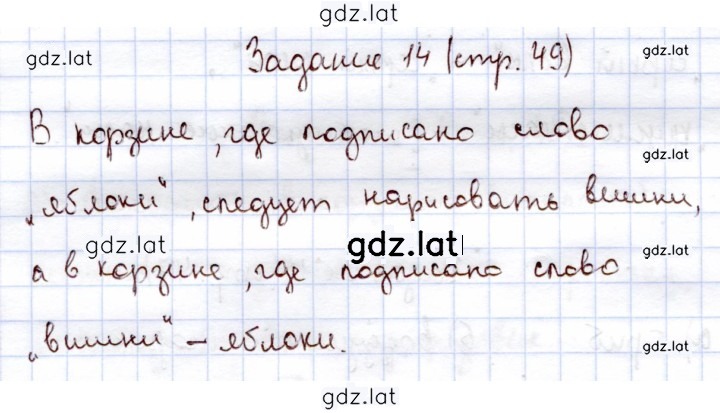 gdz.lat
gdz.lat Задание 14 (стр. 49) gdz.lat
В корзине, где подписано слово
gdz.lat
„яблоки“, следует нарисовать вишни,
gdz.lat gdz.lat gdz.lat
а в корзине, где подписано слово
„вишни“ – яблоки. gdz.lat
gdz.lat